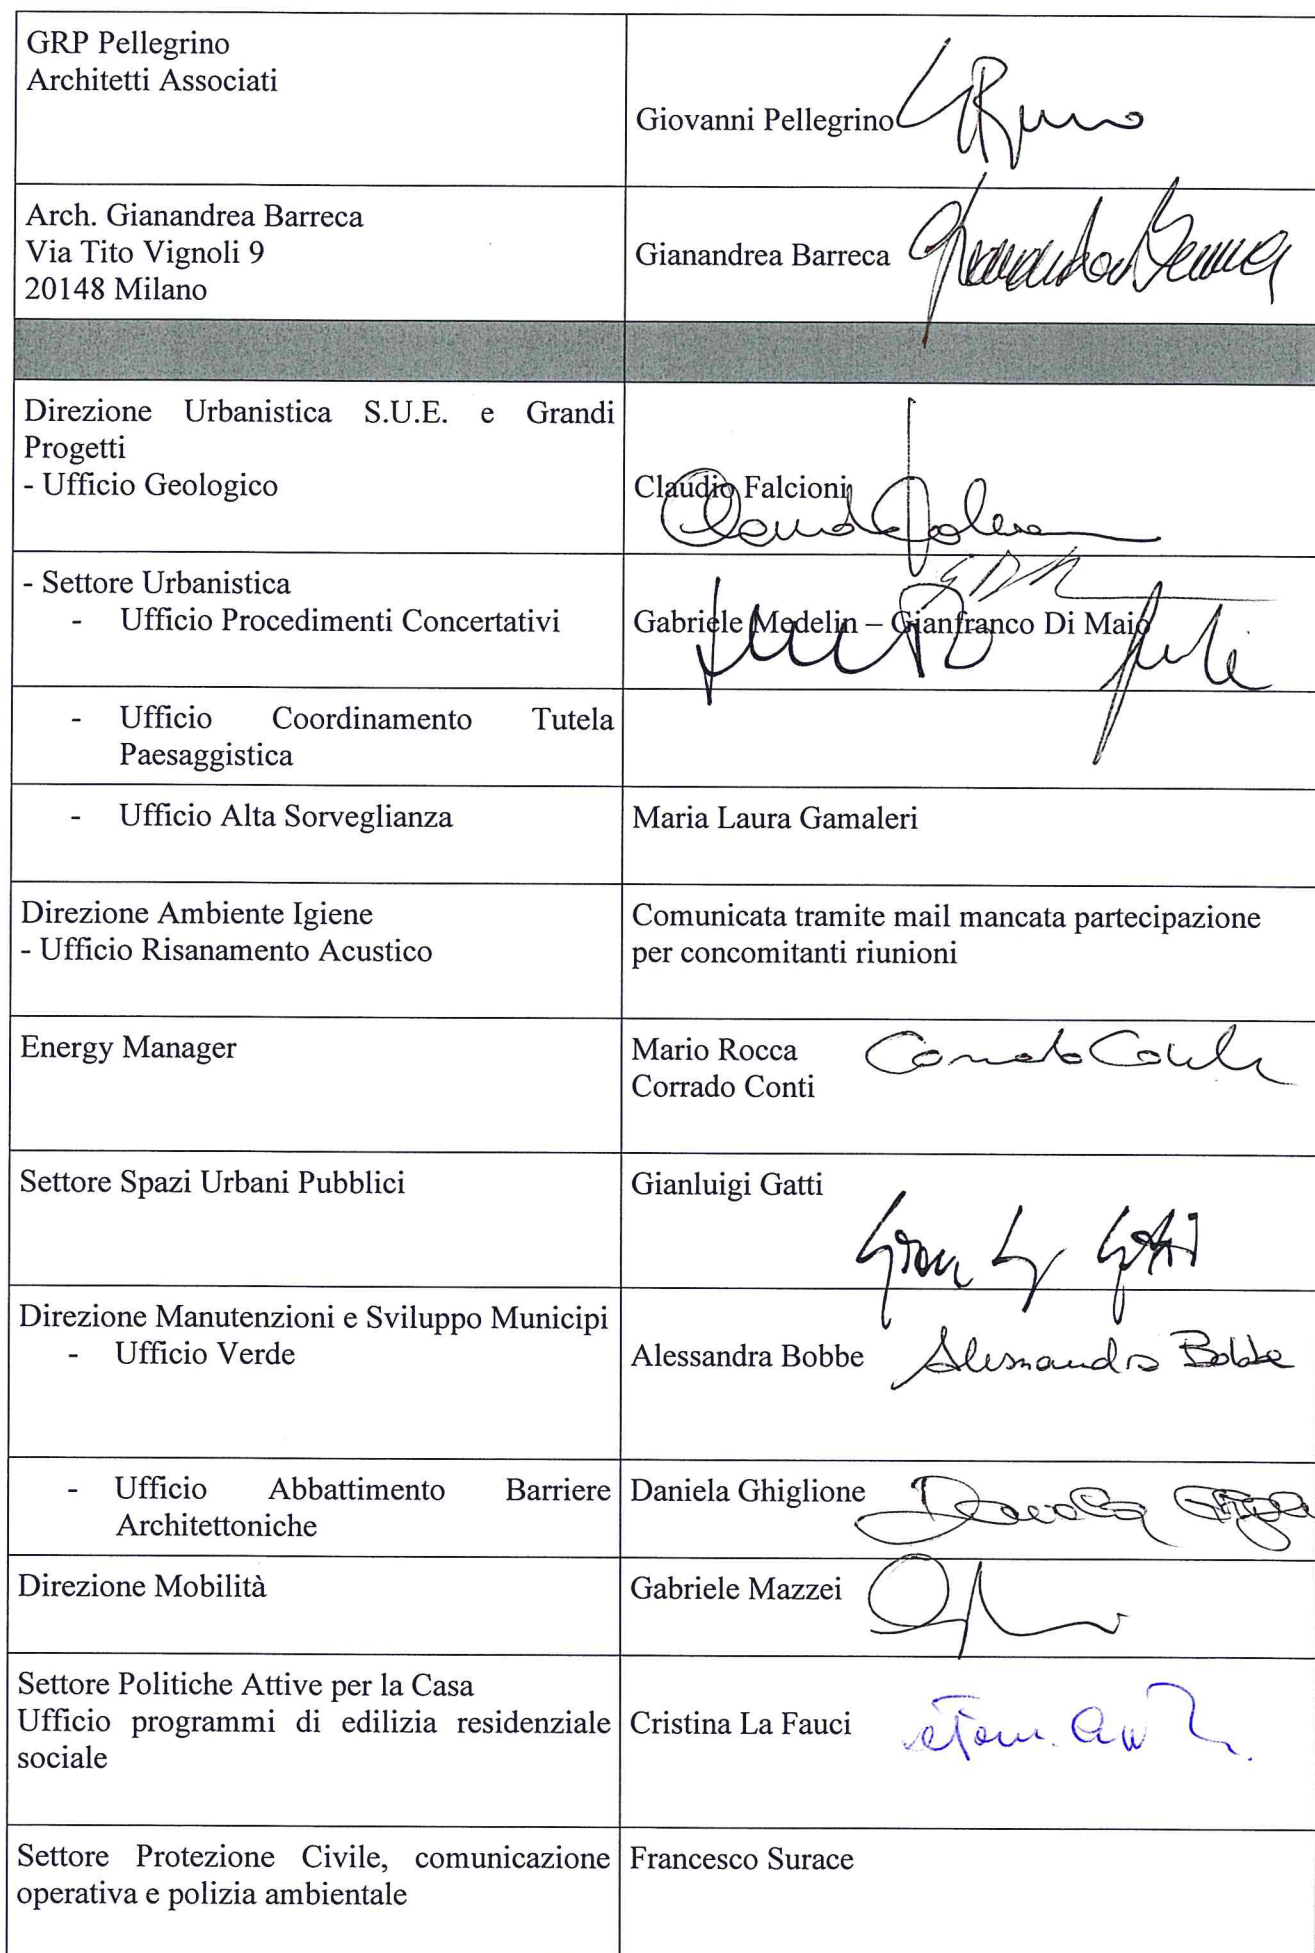 GRP Pellegrino
Architetti Associati
Giovanni Pellegrino
Arch. Gianandrea Barreca
Via Tito Vignoli 9
20148 Milano
Gianandrea Barreca
Direzione Urbanistica S.U.E. e Grandi
Progetti
- Ufficio Geologico
Claudio Falcioni
- Settore Urbanistica
- Ufficio Procedimenti Concertativi
Gabriele Medelin – Gianfranco Di Maio
- Ufficio Coordinamento Tutela
Paesaggistica
- Ufficio Alta Sorveglianza
Maria Laura Gamaleri
Direzione Ambiente Igiene
- Ufficio Risanamento Acustico
Comunicata tramite mail mancata partecipazione
per concomitanti riunioni
Energy Manager
Mario Rocca
Corrado Conti
Settore Spazi Urbani Pubblici
Gianluigi Gatti
Direzione Manutenzioni e Sviluppo Municipi
- Ufficio Verde
Alessandra Bobbe
Alessandra Bobbe
- Ufficio Abbattimento Barriere
Architettoniche
Daniela Ghiglione
Direzione Mobilità
Gabriele Mazzei
Settore Politiche Attive per la Casa
Ufficio programmi di edilizia residenziale
sociale
Cristina La Fauci
Settore Protezione Civile, comunicazione
operativa e polizia ambientale
Francesco Surace